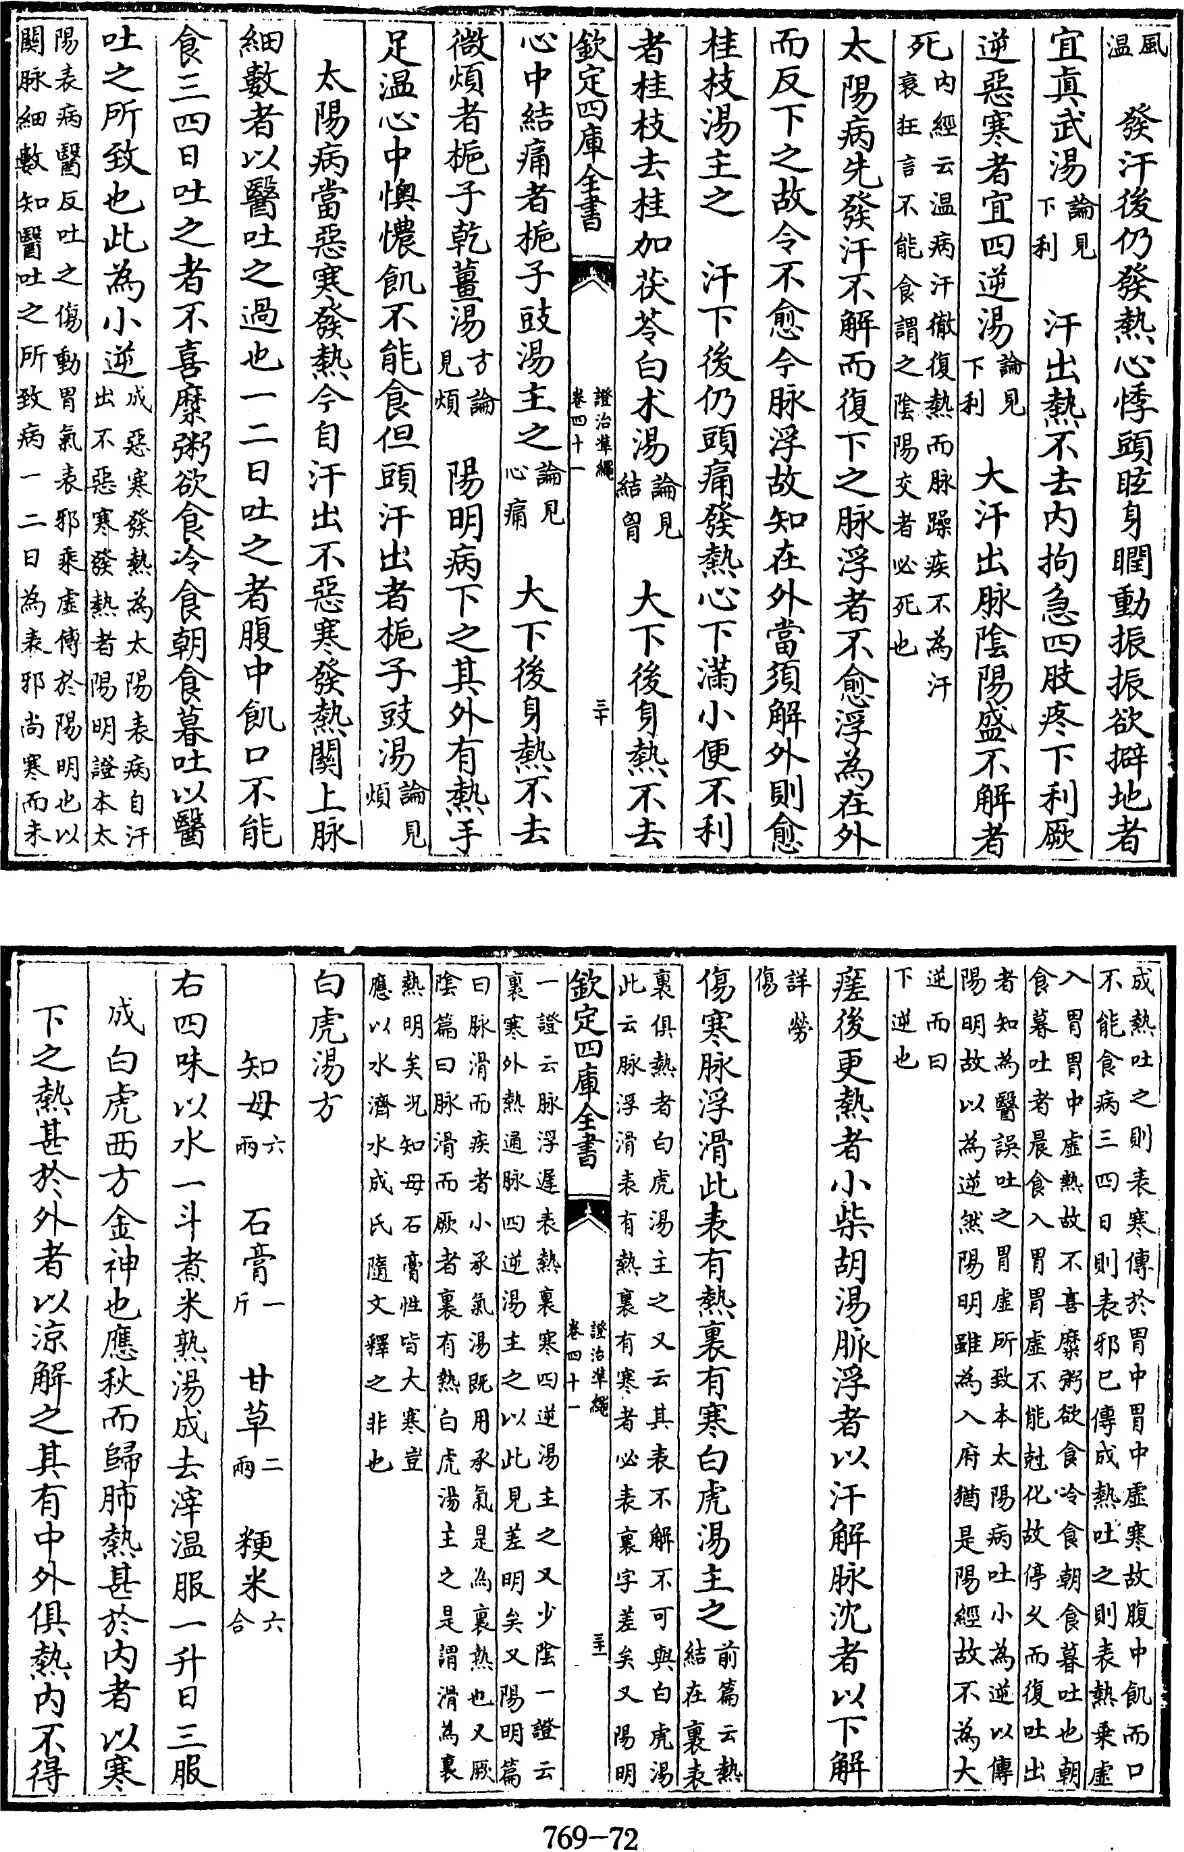 風温　發汗後仍發熱心悸頭眩身瞤動振振欲擗地者
宜眞武湯論見下利　汗出熱不去内拘急四肢疼下利厥
逆惡寒者宜四逆湯論見下利　大汗出脉陰陽盛不解者
死内經云温病汗徹復熱而脉躁疾不為汗衰狂言不能食謂之陰陽交者必死也
太陽病先發汗不解而復下之脉浮者不愈浮為在外
而反下之故令不愈今脉浮故知在外當須解外則愈
桂枝湯主之　汗下後仍頭痛發熱心下滿小便不利
者桂枝去桂加茯苓白朮湯論見結胷　大下後身熱不去
欽定四庫全書　證治準繩卷四十一　三十
心中結痛者梔子豉湯主之論見心痛　大下後身熱不去
微煩者梔子乾薑湯方論見煩　陽明病下之其外有熱手
足温心中懊憹飢不能食但頭汗出者梔子豉湯論見煩
太陽病當惡寒發熱今自汗出不惡寒發熱關上脉
細數者以醫吐之過也一二日吐之者腹中飢口不能
食三四日吐之者不喜糜粥欲食冷食朝食暮吐以醫
吐之所致也此為小逆成惡寒發熱為太陽表病自汗出不惡寒發熱者陽明證本太
陽表病醫反吐之傷動胃氣表邪乘虛傳於陽明也以關脉細數知醫吐之所致病一二日為表邪尚寒而未
成熱吐之則表寒傳於胃中胃中虛寒故腹中飢而口不能食病三四日則表邪已傳成熱吐之則表熱乗虛
入胃胃中虛熱故不喜糜粥欲食冷食朝食暮吐也朝食暮吐者晨食入胃胃虛不能尅化故停久而復吐出
者知為醫誤吐之胃虛所致本太陽病吐小為逆以傳陽明故以為逆然陽明雖為入府猶是陽經故不為大
逆而曰下逆也
瘥後更熱者小柴胡湯脈浮者以汗解脉沈者以下解
詳勞傷
傷寒脉浮滑此表有熱裏有寒白虎湯主之前篇云熱結在裏表
裏俱熱者白虎湯主之又云其表不解不可與白虎湯此云脉浮滑表有熱裏有寒者必表裏字差矣又陽明
欽定四庫全書　證治準繩卷四十一　三十一
一證云脉浮遲表熱裏寒四逆湯主之又少陰一證云裏寒外熱通脉四逆湯主之以此見差明矣又陽明篇
曰脉滑而疾者小承氣湯既用承氣是為裏熱也又厥陰篇曰脉滑而厥者裏有熱白虎湯主之是謂滑為裏
熱明矣况知母石膏性皆大寒豈應以水濟水成氏隨文釋之非也
白虎湯方
知母六兩　石膏一斤　甘草二兩　粳米六合
右四味以水一斗煮米熟湯成去滓温服一升日三服
成白虎西方金神也應秋而歸肺熱甚於内者以寒
下之熱甚於外者以涼解之其有中外俱熱内不得
769-72